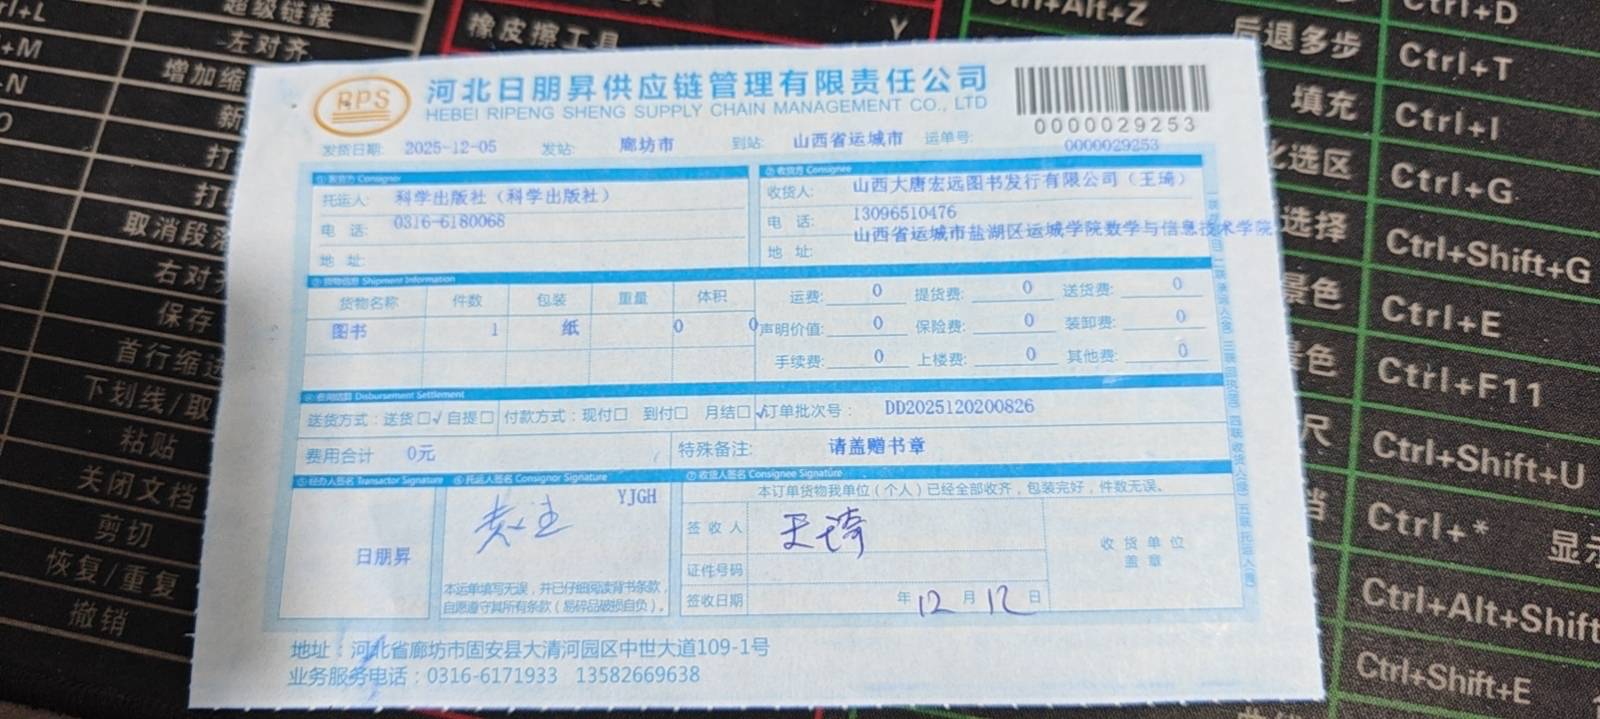 超级链接
左对齐
橡皮擦工具
Y
Ctrl+Alt+Z
后退多步
Ctrl+D
Ctrl+T
填充
Ctrl+I
Ctrl+G
Ctrl+Shift+G
Ctrl+E
Ctrl+F11
Ctrl+Shift+U
Ctrl+*
Ctrl+Alt+Shift
Ctrl+Shift+E
取消段落
右对齐
保存
首行缩进
下划线/取
粘贴
关闭文档
剪切
恢复/重复
撤销
RPS
河北日朋昇供应链管理有限责任公司
HEBEI RIPENG SHENG SUPPLY CHAIN MANAGEMENT CO., LTD
0000029253
发货日期: 2025-12-05 发站: 廊坊市 到站: 山西省运城市 运单号: 0000029253
①发货方 Consignor
②收货方 Consignee
托运人: 科学出版社（科学出版社）
收货人: 山西大唐宏远图书发行有限公司（王琦）
电 话: 0316-6180068
电 话: 13096510476
地 址:
地 址: 山西省运城市盐湖区运城学院数学与信息技术学院
③货物信息 Shipment Information
货物名称 件数 包装 重量 体积
图书 1 纸 0 0
运费: 0 提货费: 0 送货费: 0
声明价值: 0 保险费: 0 装卸费: 0
手续费: 0 上楼费: 0 其他费: 0
④费用结算 Disbursement Settlement
送货方式：送货□√自提□ 付款方式：现付□ 到付□ 月结□√订单批次号： DD2025120200826
费用合计 0元 特殊备注: 请盖赠书章
⑤经办人签名 Transactor Signature
⑥托运人签名 Consignor Signature
⑦收货人签名 Consignee Signature
日朋昇
YJGH
本运单填写无误，并已仔细阅读背书条款，
自愿遵守其所有条款（易碎品破损自负）。
本订单货物我单位（个人）已经全部收齐，包装完好，件数无误。
签 收 人 王琦
证件号码
签收日期 年 12 月 12 日
收 货 单 位
盖 章
地址：河北省廊坊市固安县大清河园区中世大道109-1号
业务服务电话：0316-6171933 13582669638